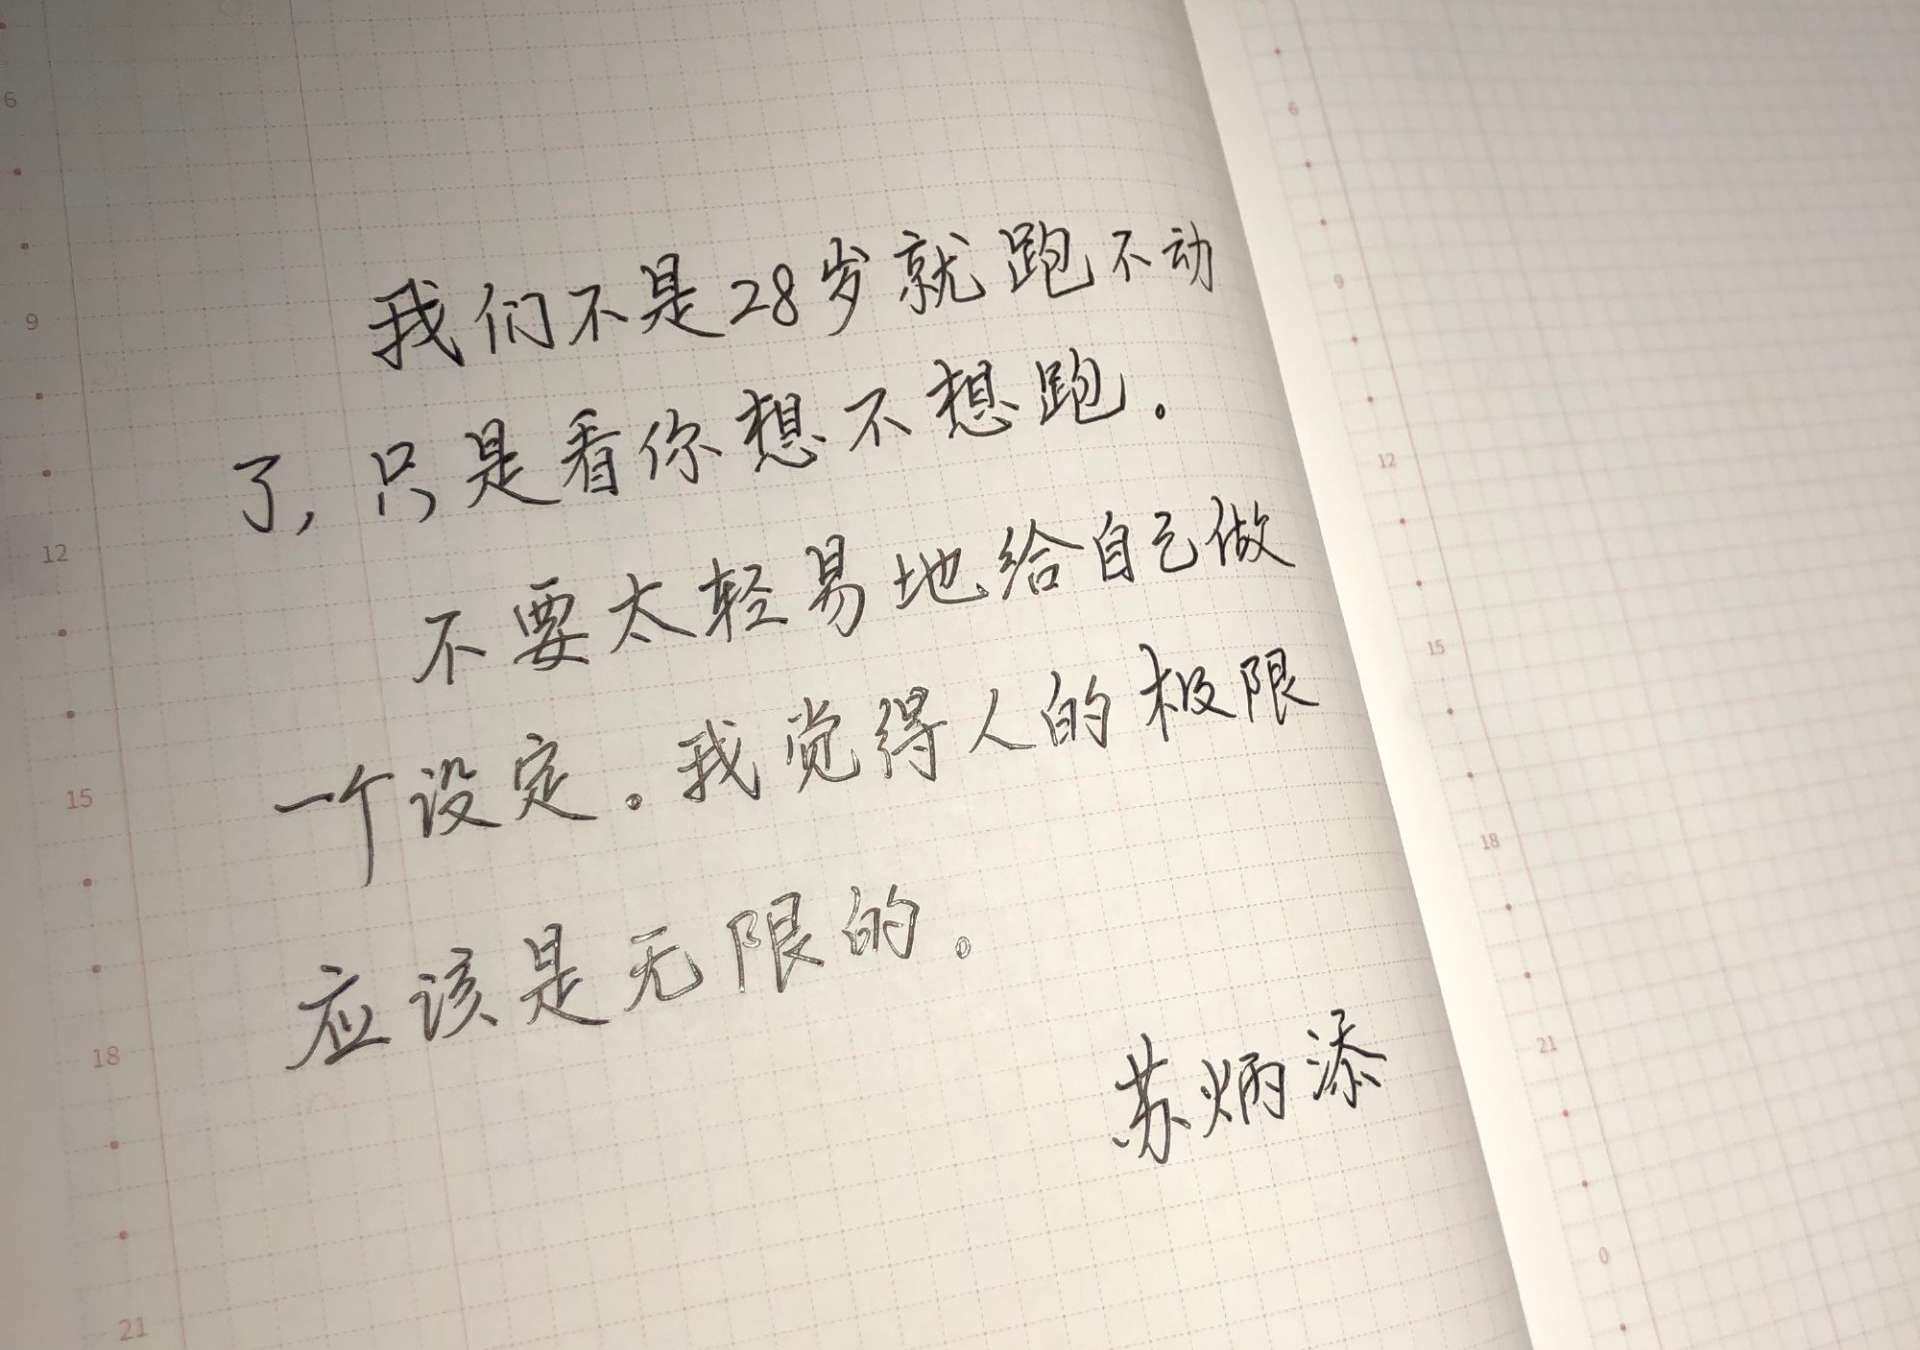 我们不是28岁就跑不动
了,只是看你想不想跑。
不要太轻易地给自己做
一个设定。我觉得人的极限
应该是无限的。
苏炳添
6
9
12
15
18
21
6
9
12
15
18
21
0